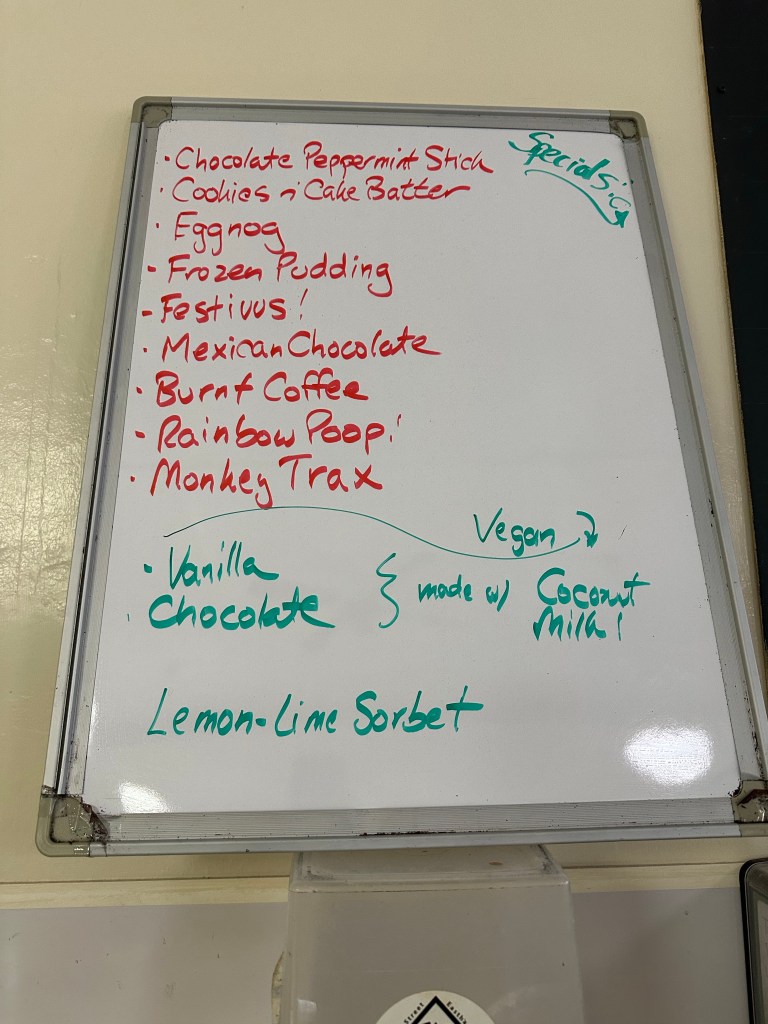 Specials:
· Chocolate Peppermint Stick
· Cookies n' Cake Batter
· Eggnog
- Frozen Pudding
- Festivus!
· Mexican Chocolate
· Burnt Coffee
· Rainbow Poop!
· Monkey Trax
Vegan
· Vanilla
· Chocolate
made w/ Coconut
Milk!
Lemon-Lime Sorbet
Street